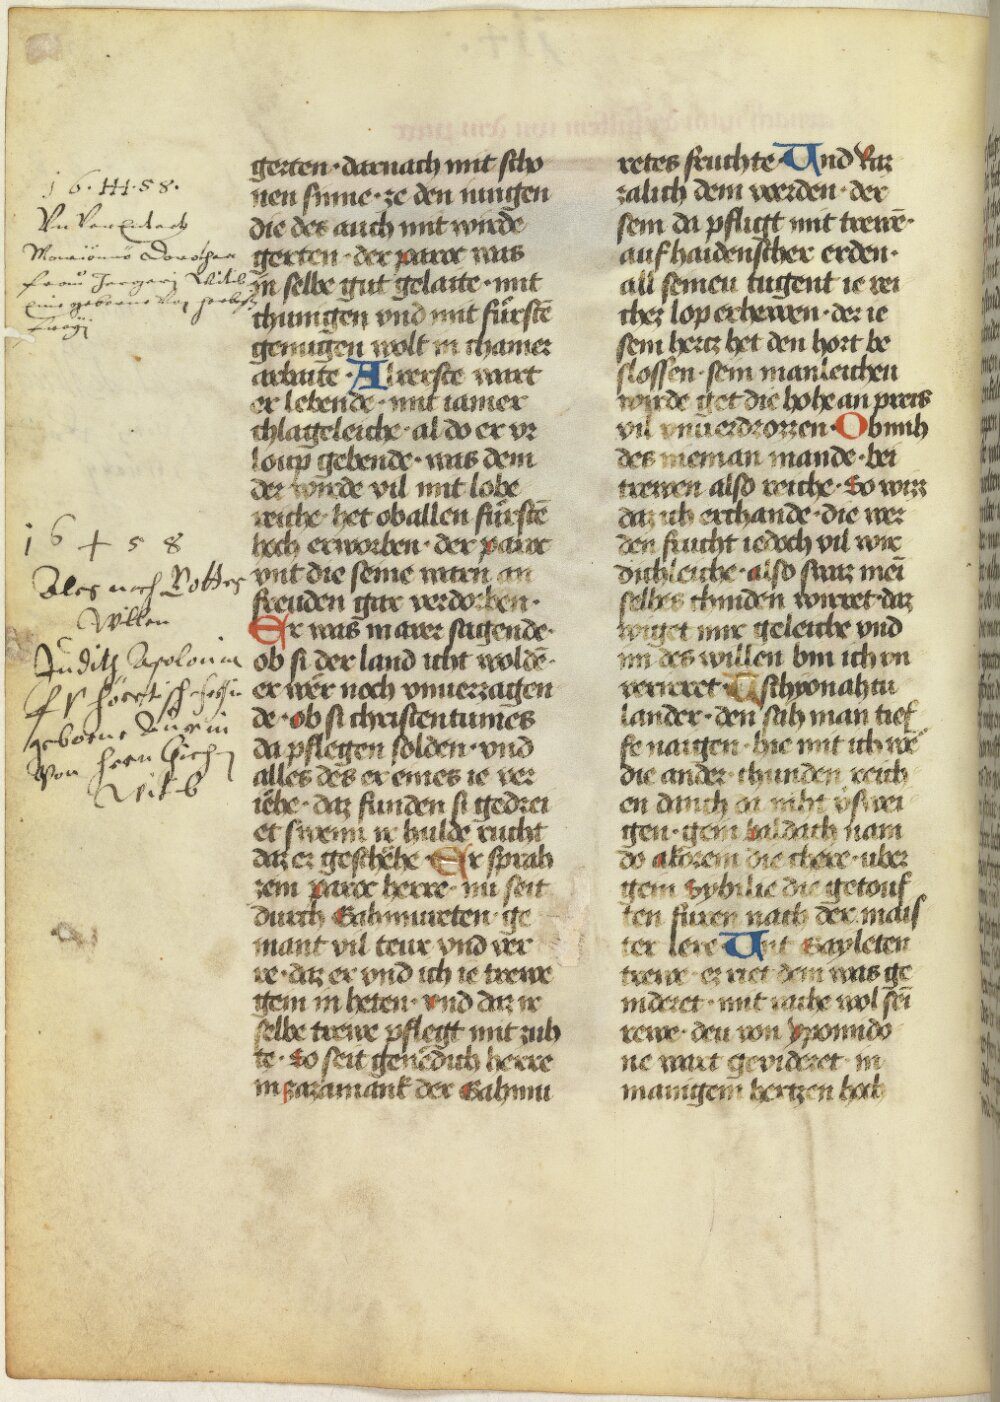 16·HH·58·
gerten · darnach mit scho
nen sinne · ze den iungen
die des auch mit wirde
gerten · der paroc was
in selbe gut gelaite · mit
chunigen vnd mit fürstē
genugen wolt in chamer
arbaite · Alrerste wart
er lebende · mit iamer
chlageleiche · al do er vr
loup gebende · was dem
der wirde vil mit lobe
reiche · het ob allen fürstē
hoch erworben · der paroc
vnt die seine warn an
freuden gar verdorben ·
Er was in aver sagende ·
ob si der land icht woldē ·
er wer noch vnuerzagen
de · ob si christentumes
da pflegen solden · vnd
alles des er eines ie ver
iehe · daz funden si gedrei
et swenn ir hulde rucht
daz er geschehe · Er sprah
zem paroc herre · nu seit
durch Gahmureten · ge
mant vil teur vnd ver
re · daz er vnd ich ie trewe
gein in heten · vnd daz ir
selbe trewe pflegt mit zuh
te · So seit genedich herre
in zazamank der Gahmu
16 + 58
Ales nach Gottes
Willen
Judith Apolonia
geborne
von hern
retes fruchte · Vnd kar
zalich dem werden · der
sein da pfligt mit trewē ·
auf haidenscher erden ·
all seinen tugent ie rei
cher lop erhewen · der ie
sein hertz het den hort be
slossen · sein manleichen
wirde get die hohe an preis
vil vnuerdrozzen · Ob mih
des nieman mande · bei
trewen also reiche · So wirr
daz ich erchande · die wer
den frucht iedoch vil wir
dichleiche · also swaz mein
selbes chinden wirret · daz
wiget mir geleiche vnd
in des willen bin ich vn
verirret · Vschponahtu
lander · den sah man tief
fe naigen · hie mit ich wē
die ander · chunden reich
en dauch si niht vͤswei
gen · gein baldach nam
do akorein die chere · uber
gein Sybilie die getouf
ten furen nach der mais
ter lere Vnt Gayleten
trewe · er riet dem was ge
mderet · mit rube wol sein
rewe · deu von ypomido
ne wart gevideret · in
manigem hertzen hoch